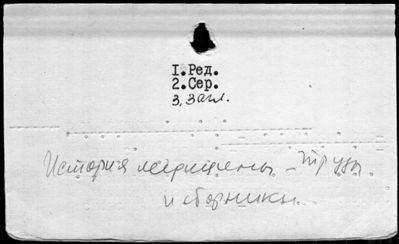 I.Ред.
2.Сер.
3, Загл.
История медицины - Труды
и сборники.